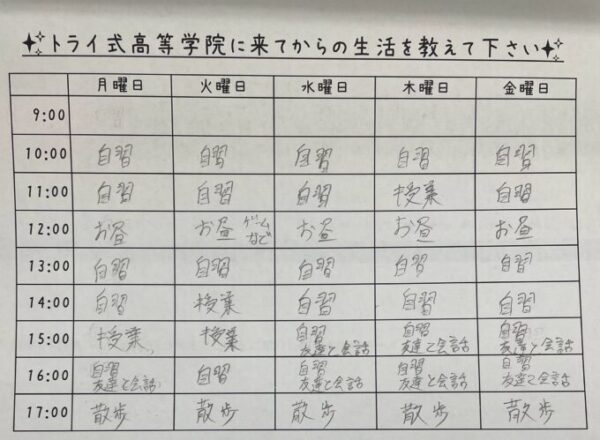 トライ式高等学院に来てからの生活を教えて下さい
月曜日 火曜日 水曜日 木曜日 金曜日
9:00
10:00 自習 自習 自習 自習 自習
11:00 自習 自習 自習 授業 自習
12:00 お昼 お昼 ゲームなど お昼 お昼 お昼
13:00 自習 自習 自習 自習 自習
14:00 自習 授業 自習 自習 自習
15:00 授業 授業 自習 友達と会話 自習 友達と会話 自習 友達と会話
16:00 自習 友達と会話 自習 自習 友達と会話 自習 友達と会話 自習 友達と会話
17:00 散歩 散歩 散歩 散歩 散歩